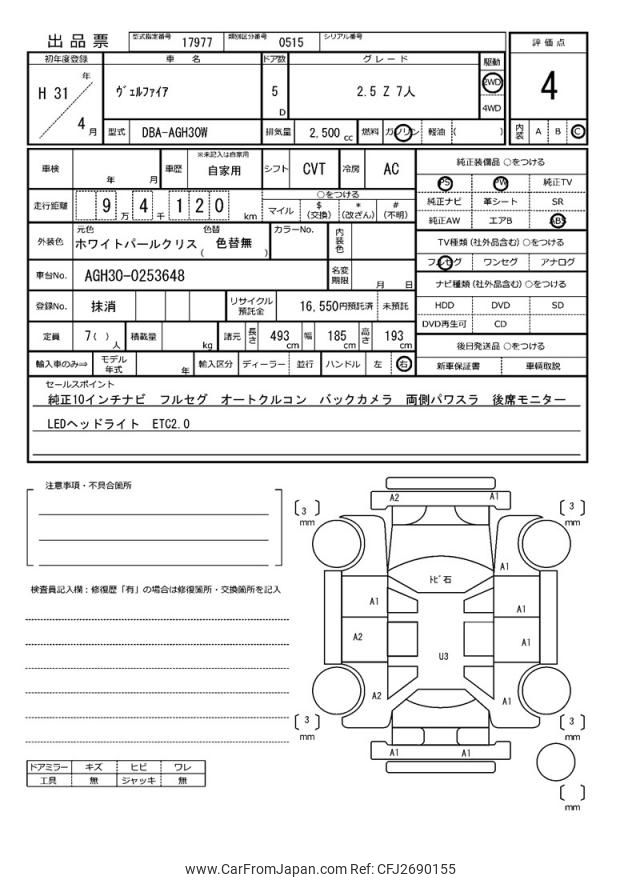 出品票 型式指定番号 17977 類別区分番号 0515 シリアル番号
評価点
4
内装 A B C
初年度登録 車名 ドア数 グレード 駆動
H 31 年 4 月
ヴェルファイア 5 D 2.5 Z 7人 2WD
4WD
型式 DBA-AGH30W 排気量 2,500 cc 燃料 ガソリン 軽油 ( )
車検 年 月 車歴 ※未記入は自家用 自家用 シフト CVT 冷房 AC
走行距離 9 万 4 千 1 2 0 km
○をつける
マイル $ (交換) * (改ざん) # (不明)
外装色 元色 ホワイトパールクリス 色替 ( 色替無 ) カラーNo. 内装色
車台No. AGH30-0253648 名変期限 月 日
登録No. 抹消 リサイクル預託金 16,550円預託済 未預託
定員 7( ) 人 積載量 kg 諸元 長さ 493 cm 幅 185 cm 高さ 193 cm
輸入車のみ⇒ モデル年式 年 輸入区分 ディーラー 並行 ハンドル 左 右
純正装備品 ○をつける
PS PW 純正TV
純正ナビ 革シート SR
純正AW エアB ABS
TV種類(社外品含む)○をつける
フルセグ ワンセグ アナログ
ナビ種類(社外品含む)○をつける
HDD DVD SD
DVD再生可 CD
後日発送品 ○をつける
新車保証書 車輌取説
セールスポイント
純正10インチナビ フルセグ オートクルコン バックカメラ 両側パワスラ 後席モニター
LEDヘッドライト ETC2.0
注意事項・不具合箇所
検査員記入欄:修復歴「有」の場合は修復箇所・交換箇所を記入
ドアミラー キズ ヒビ ワレ
工具 無 ジャッキ 無
A2 A1
3 mm 3 mm
A1
トビ石
A1 A1
A2 A1
U3
A2 A1
3 mm 3 mm
A1 A1
mm
www.CarFromJapan.com Ref: CFJ2690155